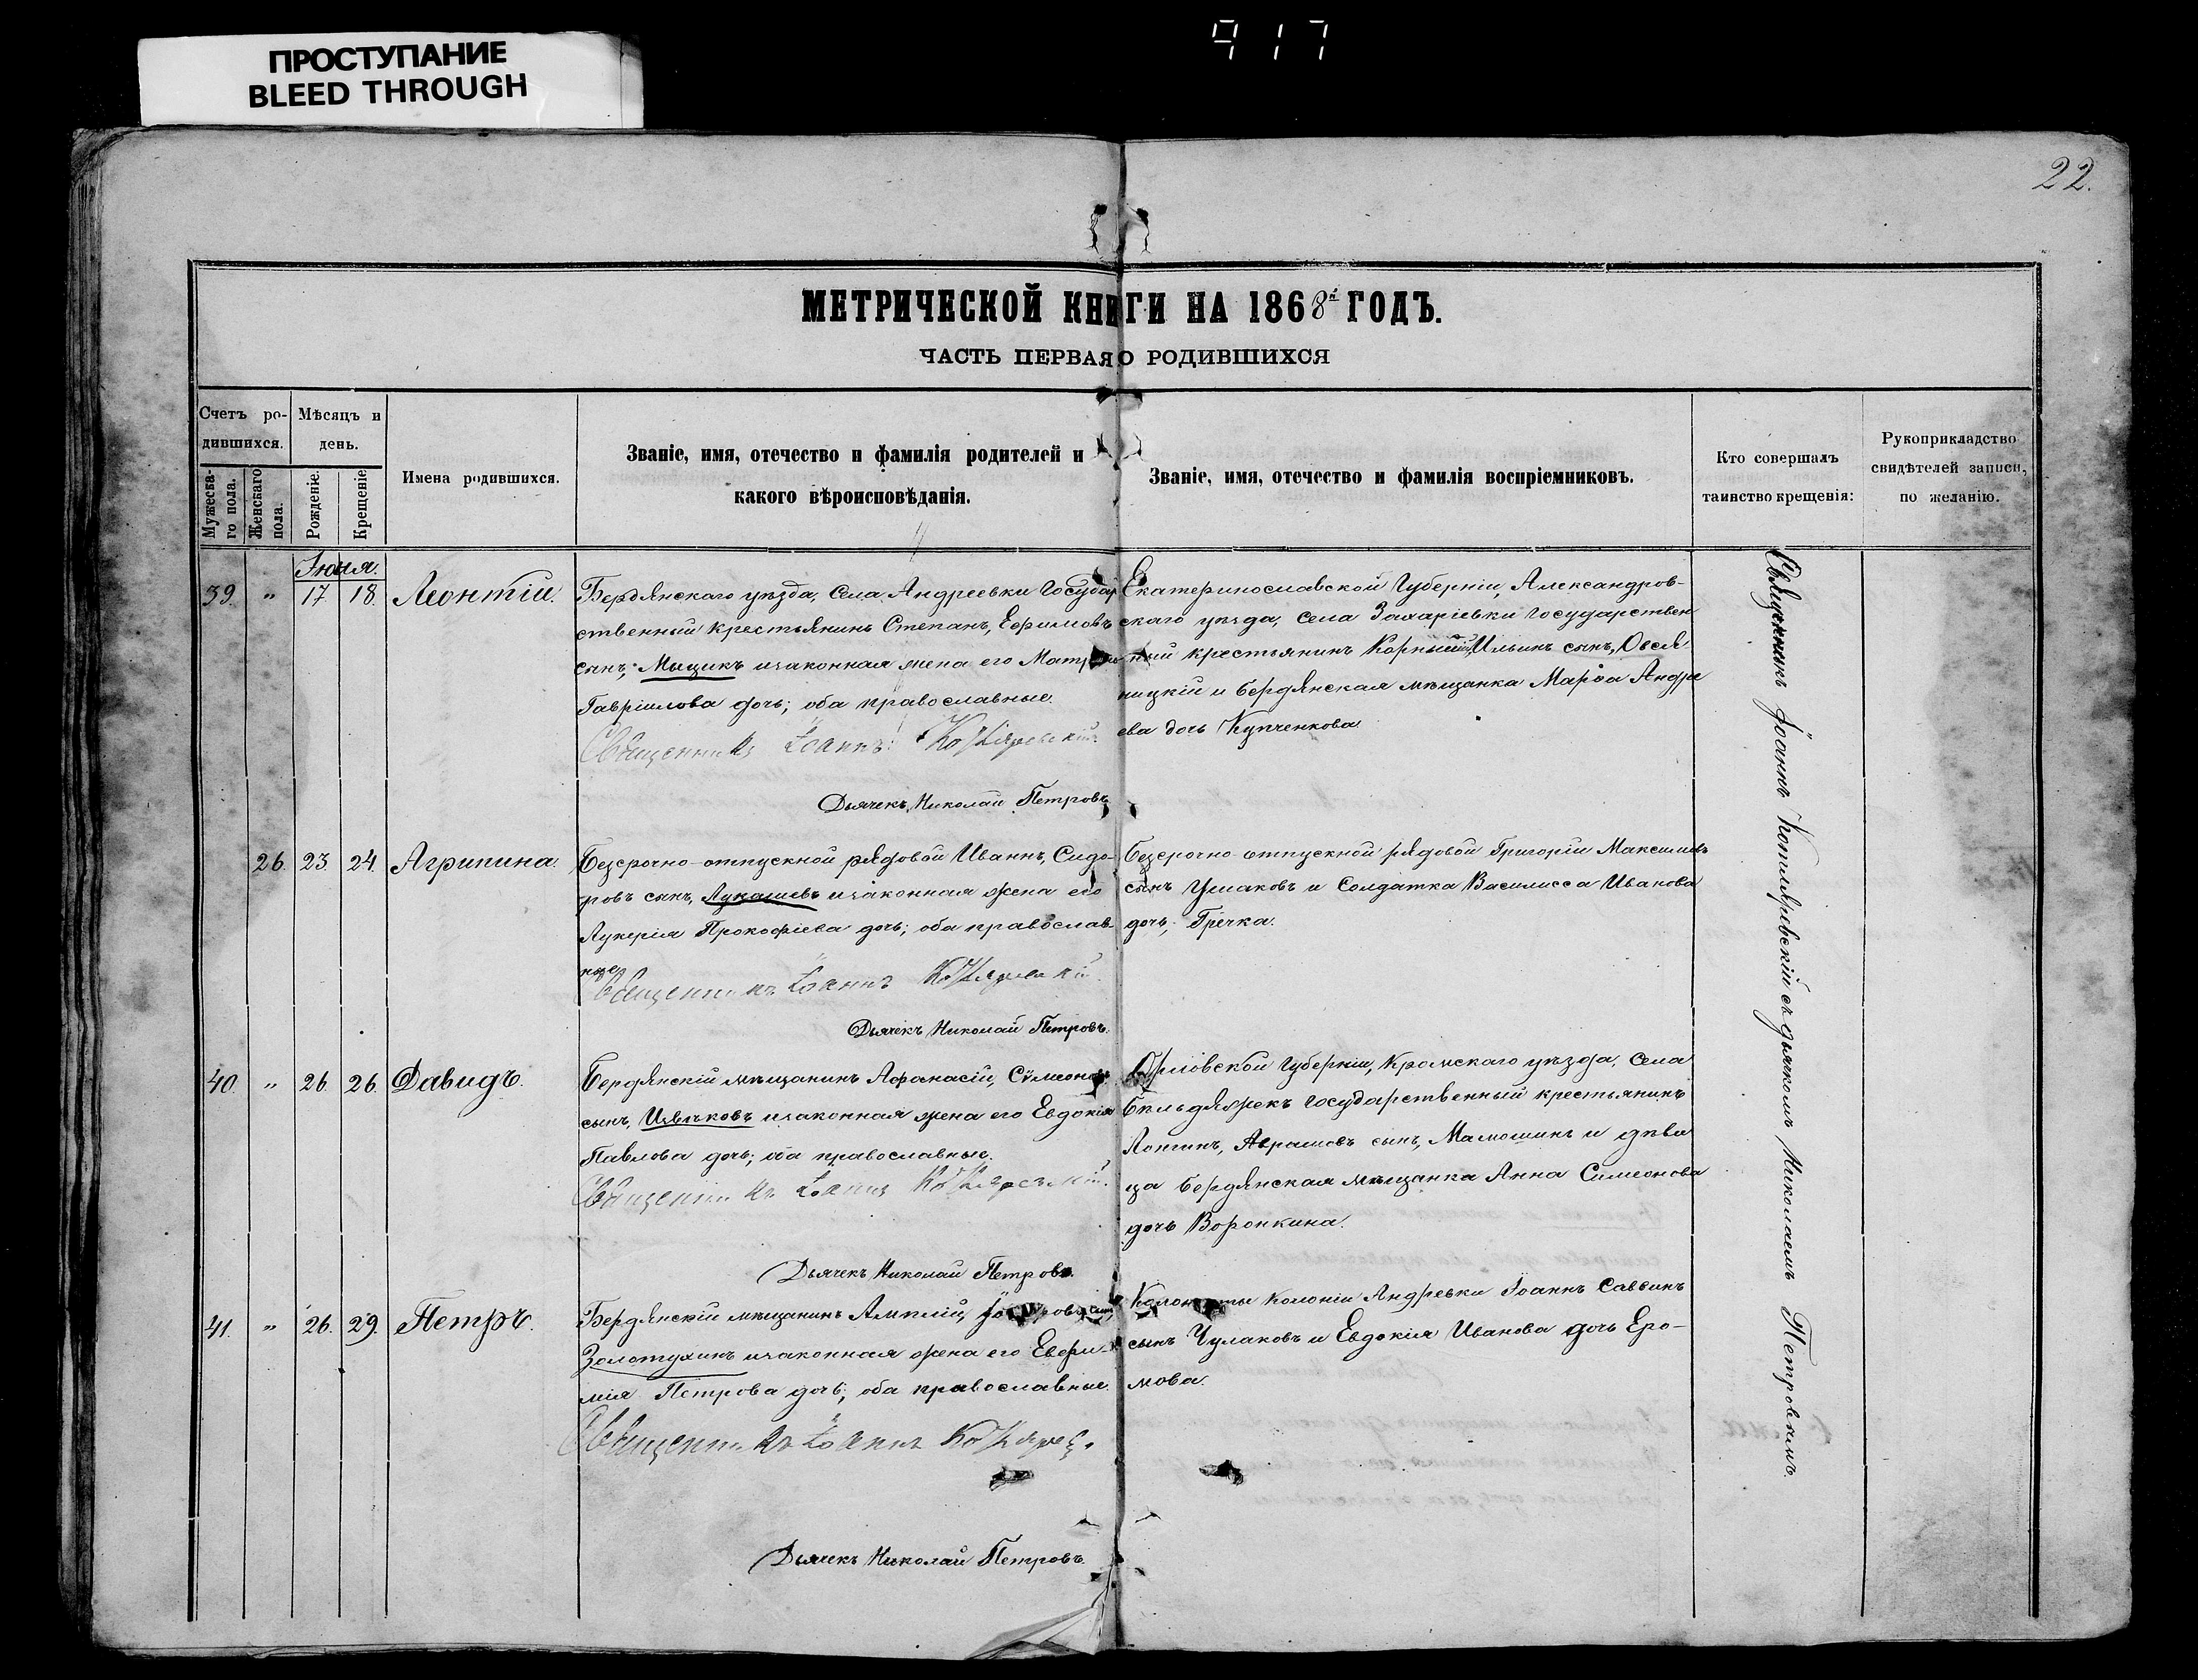 917
ПРОСТУПАНИЕ
BLEED THROUGH
22.
МЕТРИЧЕСКОЙ КНИГИ НА 1868й ГОДЪ.
ЧАСТЬ ПЕРВАЯ О РОДИВШИХСЯ
Счетъ ро-
дившихся.
Мужеска-
го пола.
Женскаго
пола.
Мѣсяцъ и
день.
Рожденіе.
Крещеніе.
Имена родившихся.
Званіе, имя, отечество и фамилія родителей и
какого вѣроисповѣданія.
Званіе, имя, отечество и фамилія воспріемниковъ.
Кто совершалъ
таинство крещенія:
Рукоприкладство
свидѣтелей записи,
по желанію.
Іюня.
39. " 17 18. Леонтій.
Бердянскаго уѣзда, Села Андреевки Государ
ственный крестьянинъ Степанъ, Ефимовъ
сынъ, Мыцикъ и законная жена его
Гавріилова дочь; оба православные.
Священникъ Іоаннъ Котляревскій
Дьячекъ, Николай Петровъ
Екатеринославской Губерніи, Александров-
скаго уѣзда, села Захаріевки Государствен
ный крестьянинъ Корнилій, Ильинъ сынъ, Овся
ницкій и бердянская мѣщанка Марѳа Андре
ева дочь Купченкова
26. 23. 24. Агрипина.
Безсрочно-отпускной рядовой Иванъ, Сидо-
ровъ сынъ, Лукашевъ и законная жена его
Лукерія Прокофіева дочь; оба православ-
ные
Священникъ Іоаннъ Котляревскій.
Дьячекъ Николай Петровъ.
Безсрочно-отпускной рядовой Григорій Максимовъ
сынъ Ушаковъ и Солдатка Василисса Иванова
дочь, Гречка.
40. " 26. 26. Давидъ.
Бердянскій мѣщанинъ Афанасій, Сѵмеоновъ
сынъ, Ивлѣковъ и законная жена его Евдокія
Павлова дочь; оба православные.
Священникъ Іоаннъ Котляревскій.
Дьячекъ Николай Петровъ.
Орловской Губерніи, Кромскаго уѣзда, Села
государственный крестьянинъ
Аврамовъ сынъ, Мамошинъ и дѣви
ца бердянская мѣщанка Анна Симеонова
дочь Воронкина.
41. " 26. 29. Петръ.
Бердянскій мѣщанинъ сынъ,
Золотухинъ и законная жена его Евфи-
мія Петрова дочь; оба православные.
Священникъ Іоаннъ
Дьячекъ Николай Петровъ.
колоніи Андревки Іоаннъ Саввинъ
сынъ Чулаковъ и Евдокія Иванова дочь Еро-
мова.
Священникъ Іоаннъ Котляревскій съ дьячкомъ Николаемъ Петровымъ.